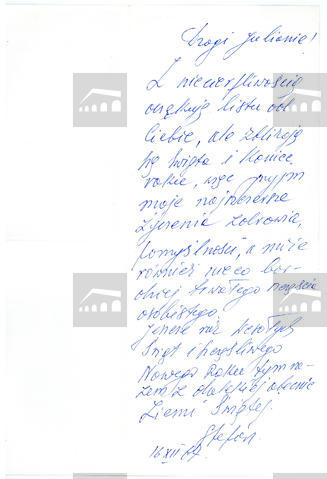 Drogi Julianie!
Z niecierpliwością
oczekuję listu od
Ciebie, ale zbliżają
się święta i koniec
roku, więc przyjm
moje najszczersze
życzenia zdrowia,
pomyślności, a może
również nieco bar-
dziej trwałego szczęścia
osobistego.
Jeszcze raz wesołych
Świąt i szczęśliwego
Nowego Roku tym ra-
zem z dalekiej obecnie
Ziemi Świętej.
Stefan
16 XII